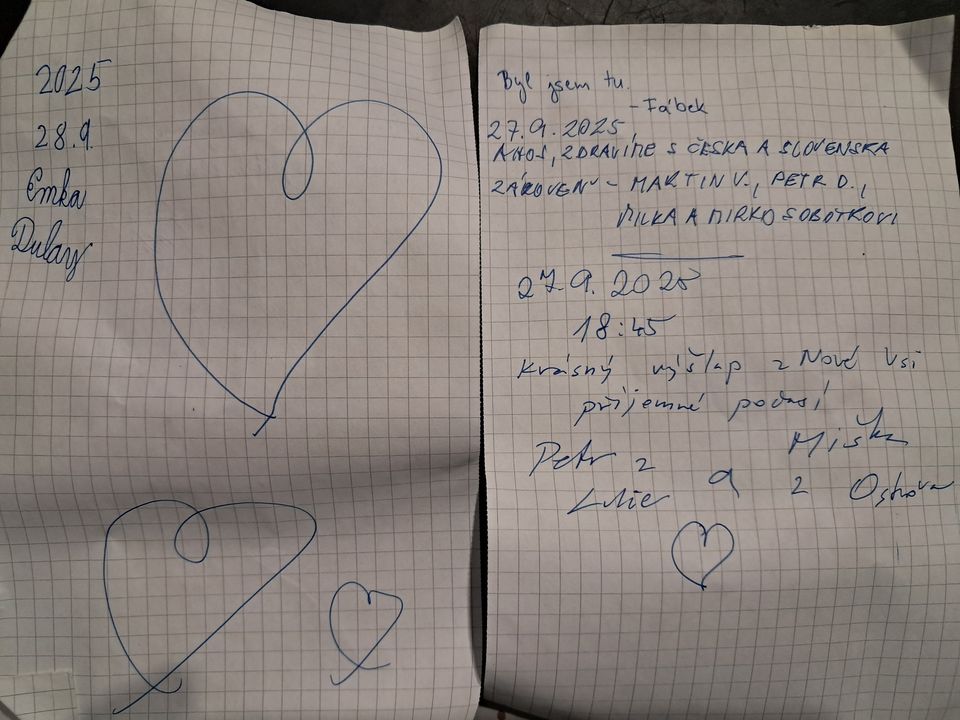 2025
28.9.
Emka
Byl jsem tu.
- Fábek
27.9.2025,
AHOJ, ZDRAVÍME S ČESKA A SLOVENSKA
ZÁROVEŇ - MARTIN V., PETR D.,
MILKA A MIRKO SOBOTKOVI
27.9.2025
18:45
Krásný výšlap z Nové Vsi
příjemné počasí
Petr z
a Miška
z Ostrova